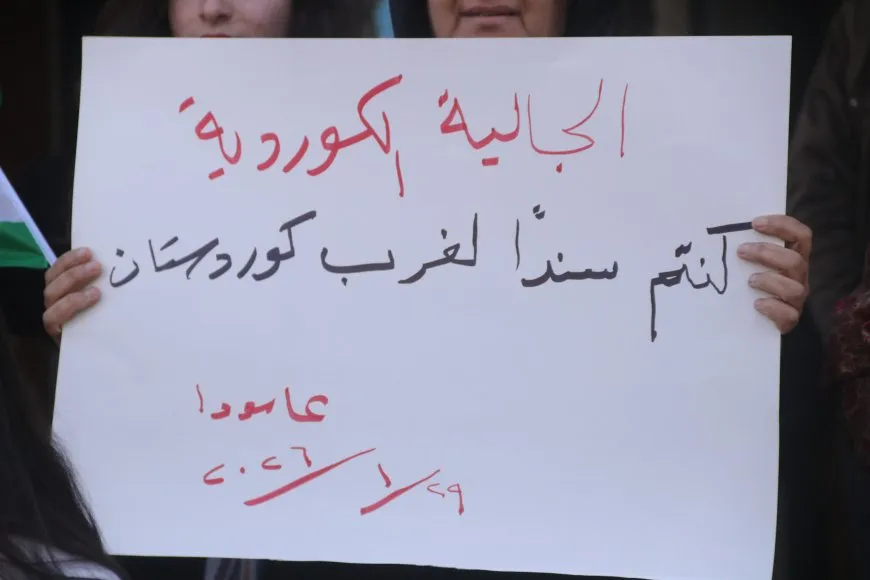 الجالية الكوردية
كنتم سندًا لغرب كوردستان
عامودا
٢٩/١/٢٠٢٦